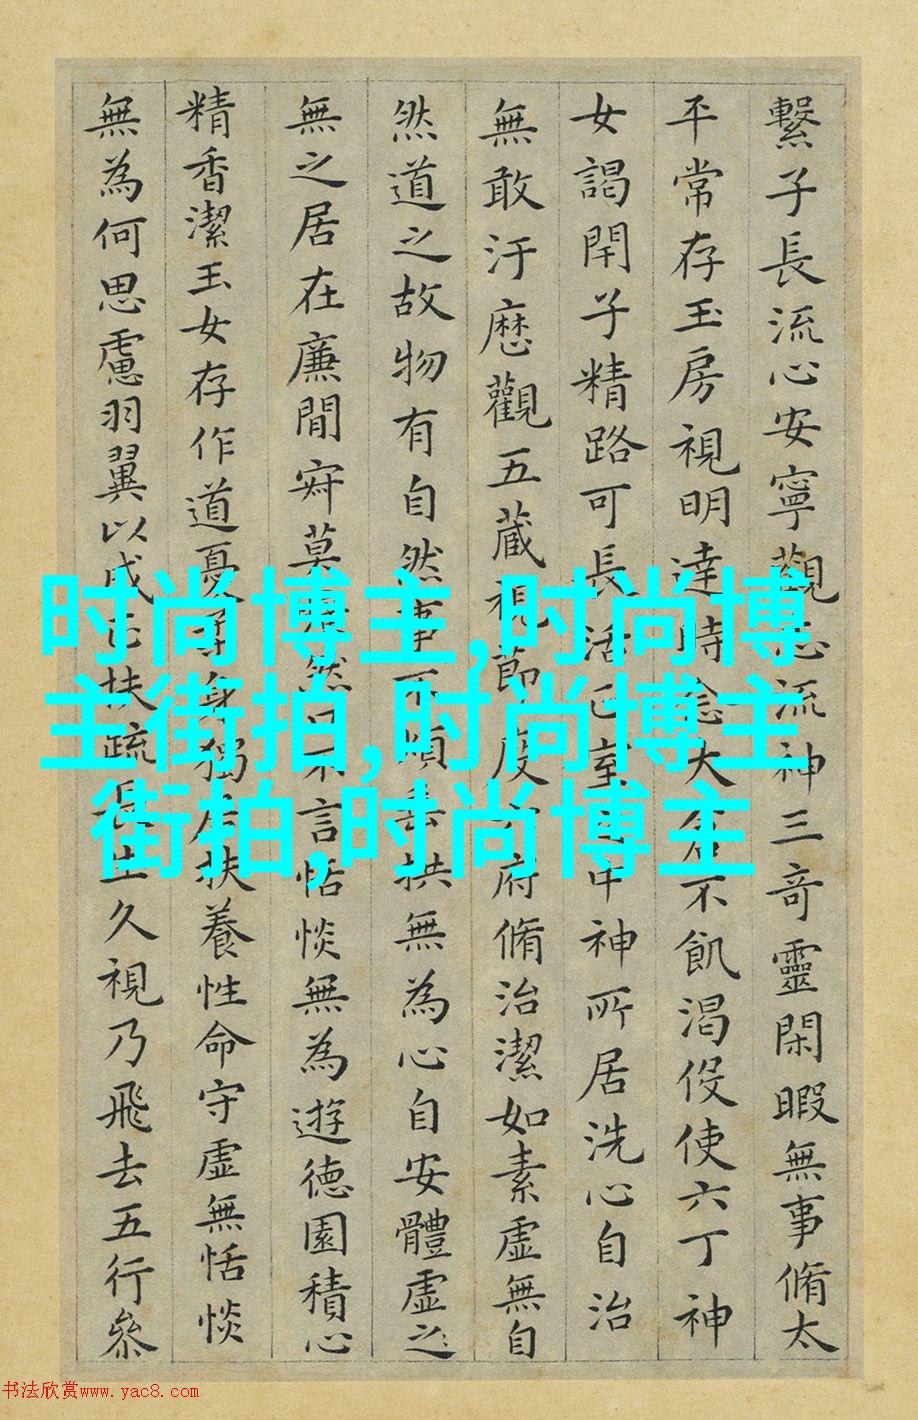 繫子長流心安寧觀志流神三奇靈閑暇無事脩太
平常存玉房視明達時念大倉不飢渴伇使六丁神
女謁閇子精路可長活正室之中神所居洗心自治
無敢汙歷觀五藏視節度六府脩治潔如素虛無自
然道之故物有自然事不煩垂拱無為心自安體虛之
無之居在廉間寂莫然口不言恬惔無為遊德園積心
精香潔玉女存作道憂身獨居扶養性命守虛無恬惔
無為何思慮羽翼以成正扶疏長生久視乃飛去五行參
时尚博主,时尚博
主街拍,时尚博主
街拍,时尚博主
书法欣赏www.yac8.com